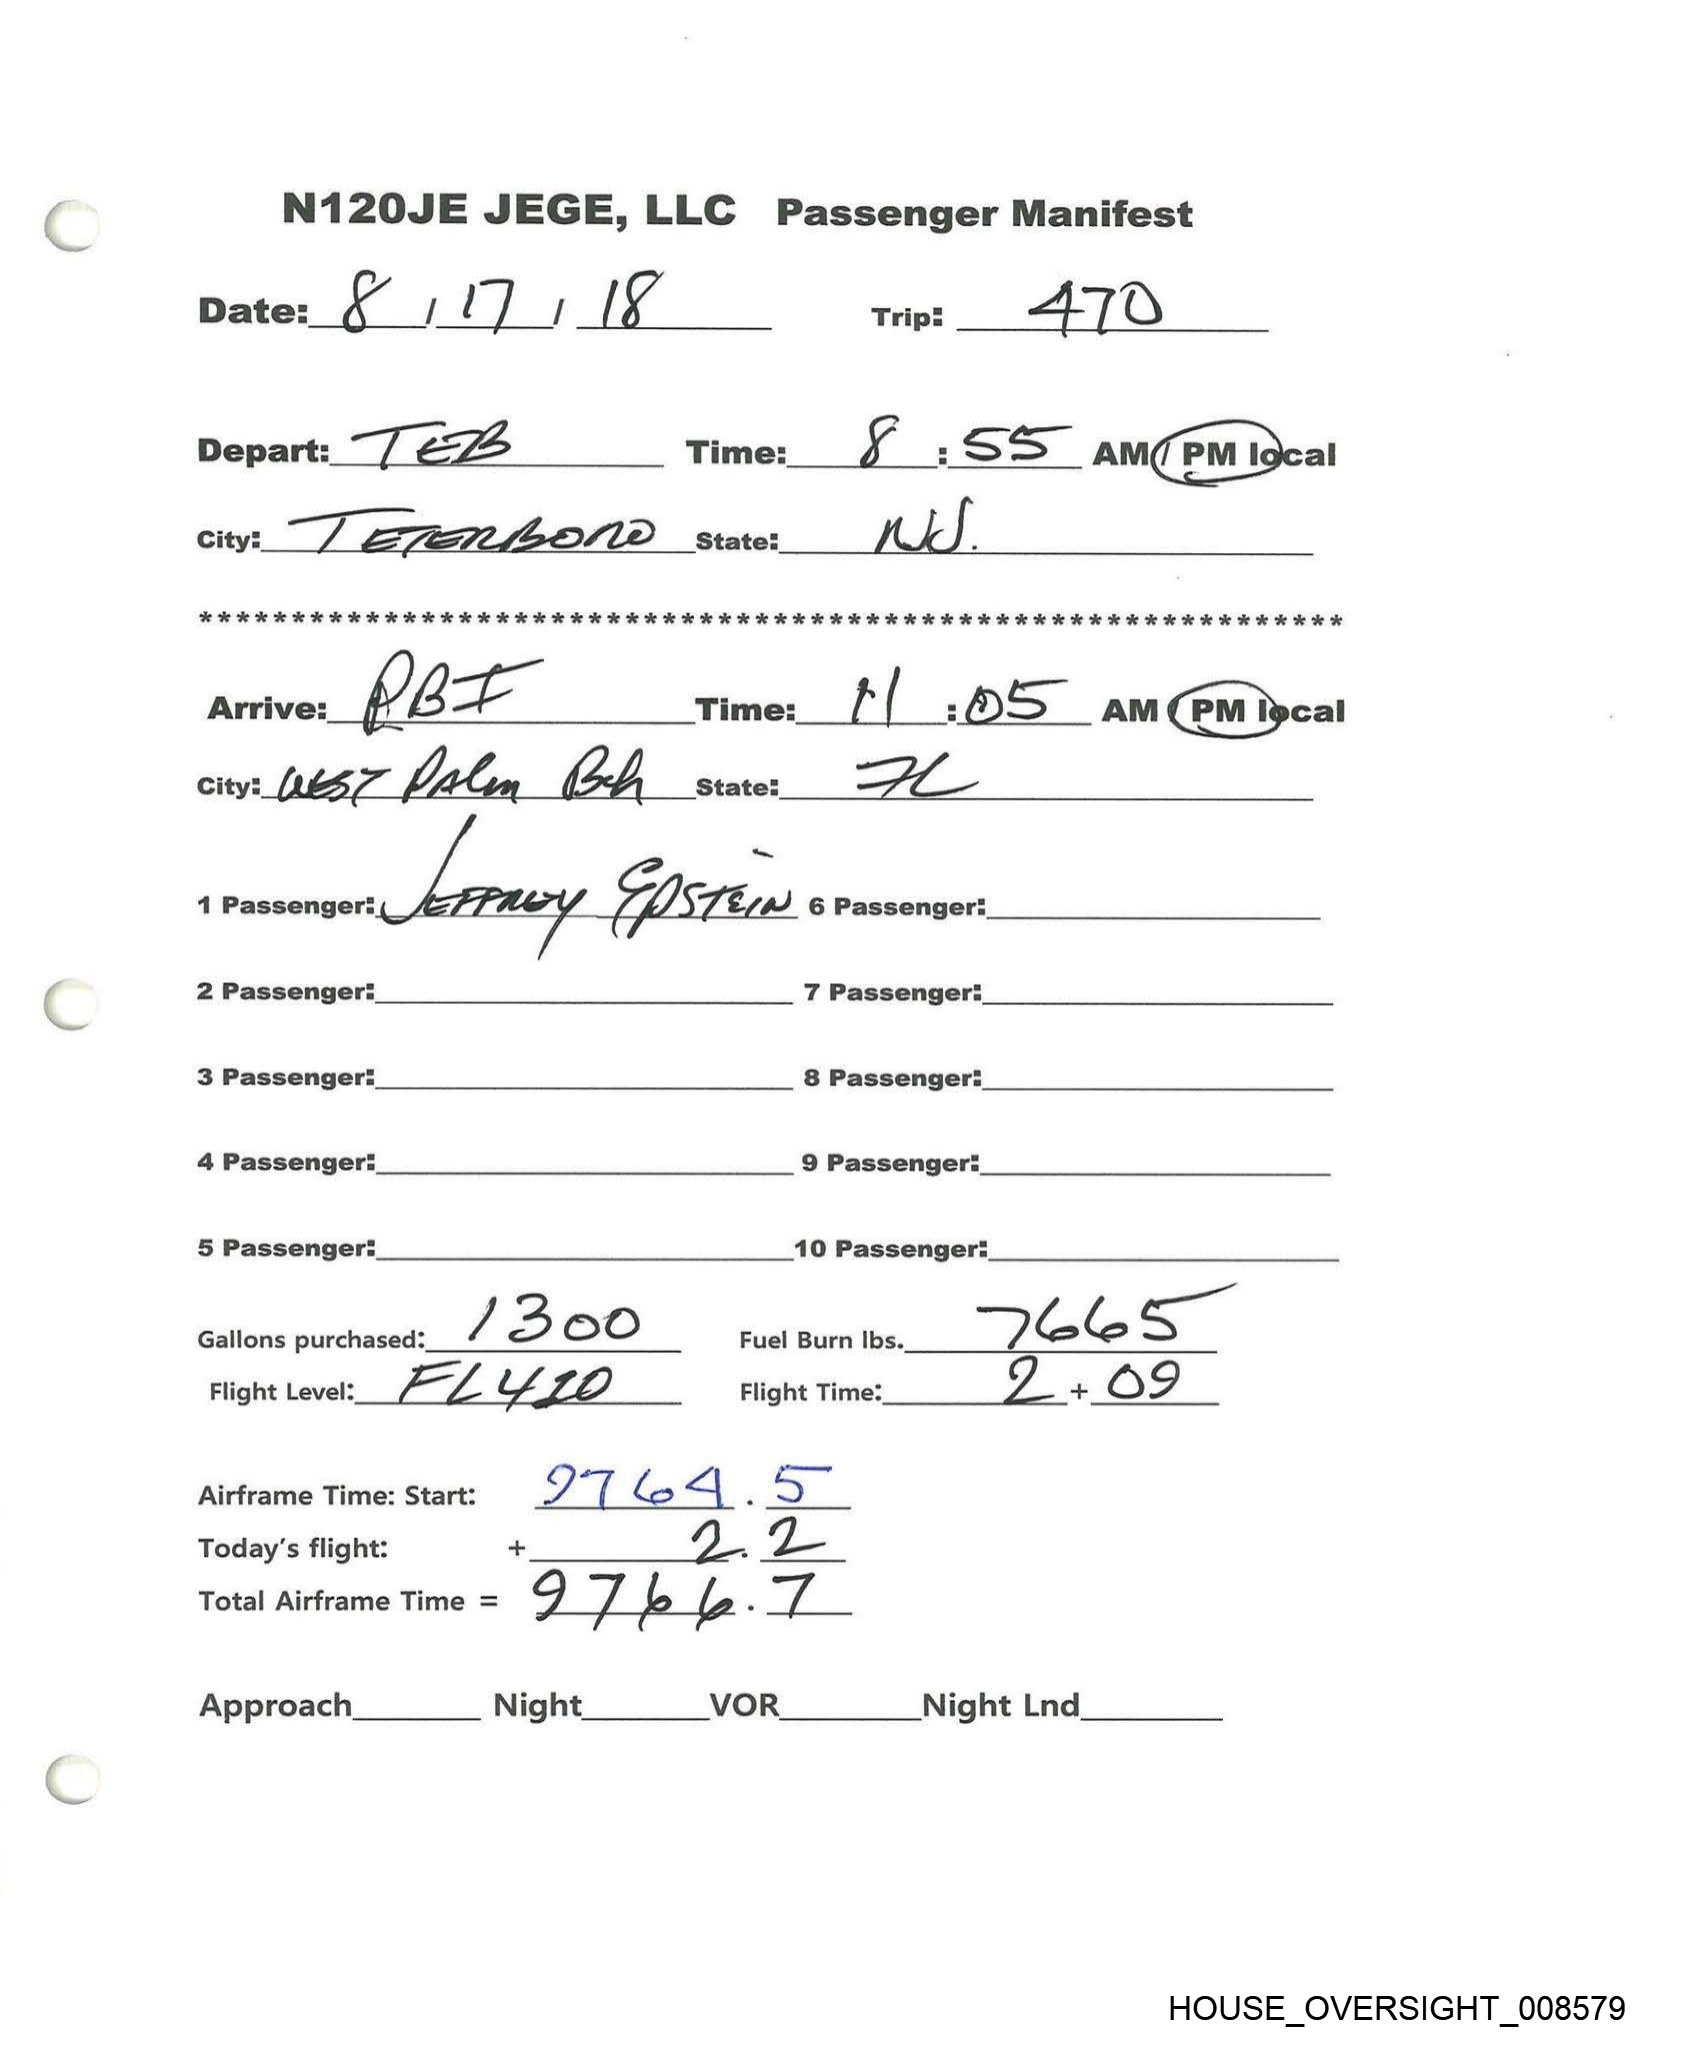 N120JE JEGE, LLC Passenger Manifest
Date: 8 / 17 / 18 Trip: 470
Depart: TEB Time: 8 : 55 AM / PM local
City: TETERBORO State: NJ.
**************************************************************
Arrive: PBI Time: 11 : 05 AM PM local
City: WEST PALM Bch State: FL
1 Passenger: JEFFREY EPSTEIN 6 Passenger:
2 Passenger: 7 Passenger:
3 Passenger: 8 Passenger:
4 Passenger: 9 Passenger:
5 Passenger: 10 Passenger:
Gallons purchased: 1300 Fuel Burn lbs. 7665
Flight Level: FL410 Flight Time: 2 + 09
Airframe Time: Start: 9764.5
Today's flight: + 2.2
Total Airframe Time = 9766.7
Approach Night VOR Night Lnd
HOUSE_OVERSIGHT_008579